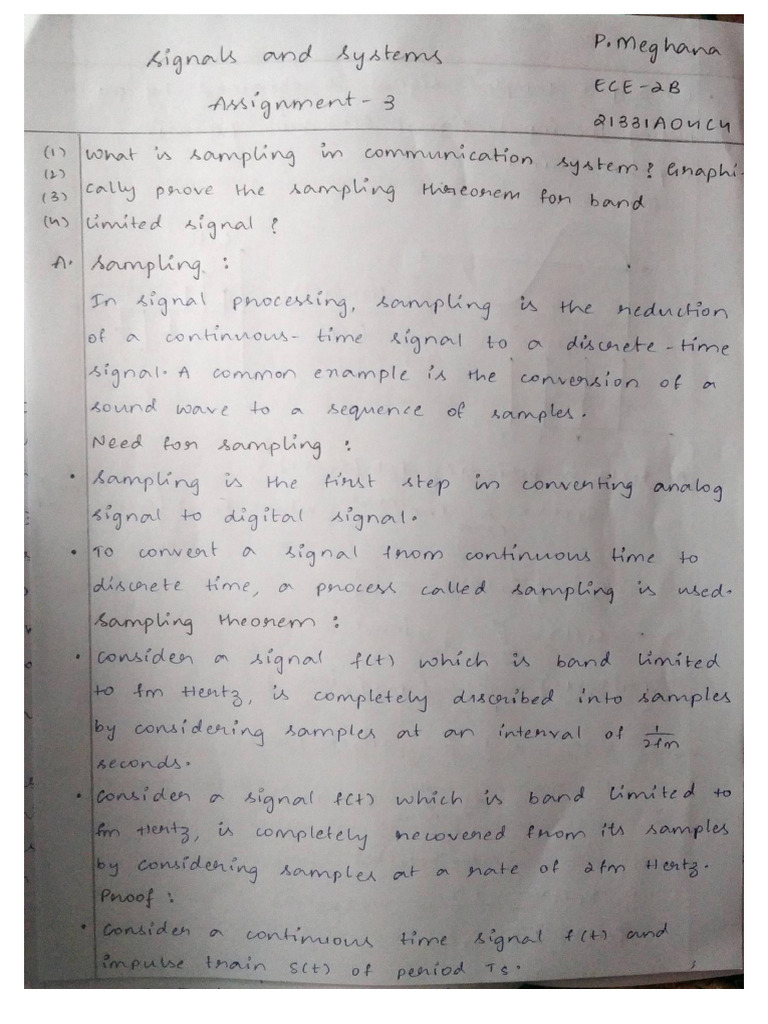 Signals and systems
P. Meghana
ECE-2B
Assignment - 3
21331A04C4
(1) What is sampling in communication system? Graphi-
(2)
(3) cally prove the sampling threorem for band
(4) limited signal?
A. Sampling :
In signal processing, sampling is the reduction
of a continuous-time signal to a discrete-time
signal. A common example is the conversion of a
sound wave to a sequence of samples.
Need for sampling :
• Sampling is the first step in converting analog
signal to digital signal.
• To convert a signal from continuous time to
discrete time, a process called sampling is used.
Sampling theorem :
• Consider a signal f(t) which is band limited
to fm Hertz, is completely discribed into samples
by considering samples at an interval of 1/2fm
seconds.
• Consider a signal f(t) which is band limited to
fm Hertz, is completely recovered from its samples
by considering samples at a rate of 2fm Hertz.
Proof :
• Consider a continuous time signal f(t) and
impulse train S(t) of period Ts.